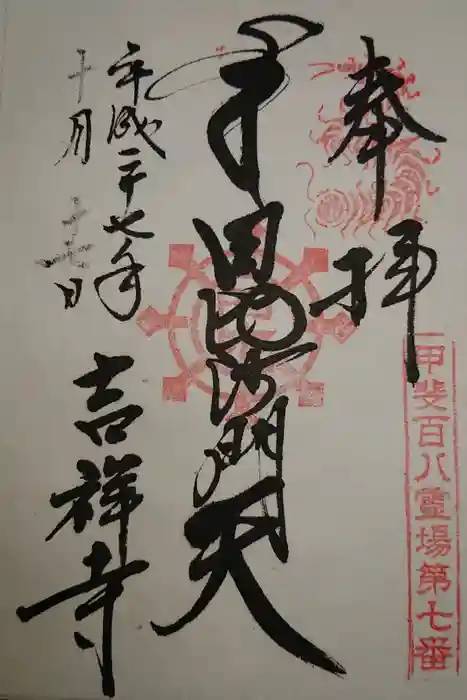 奉拝
甲斐百八霊場第七番
田毘沙門天
平成二十七年
十月十七日
吉祥寺